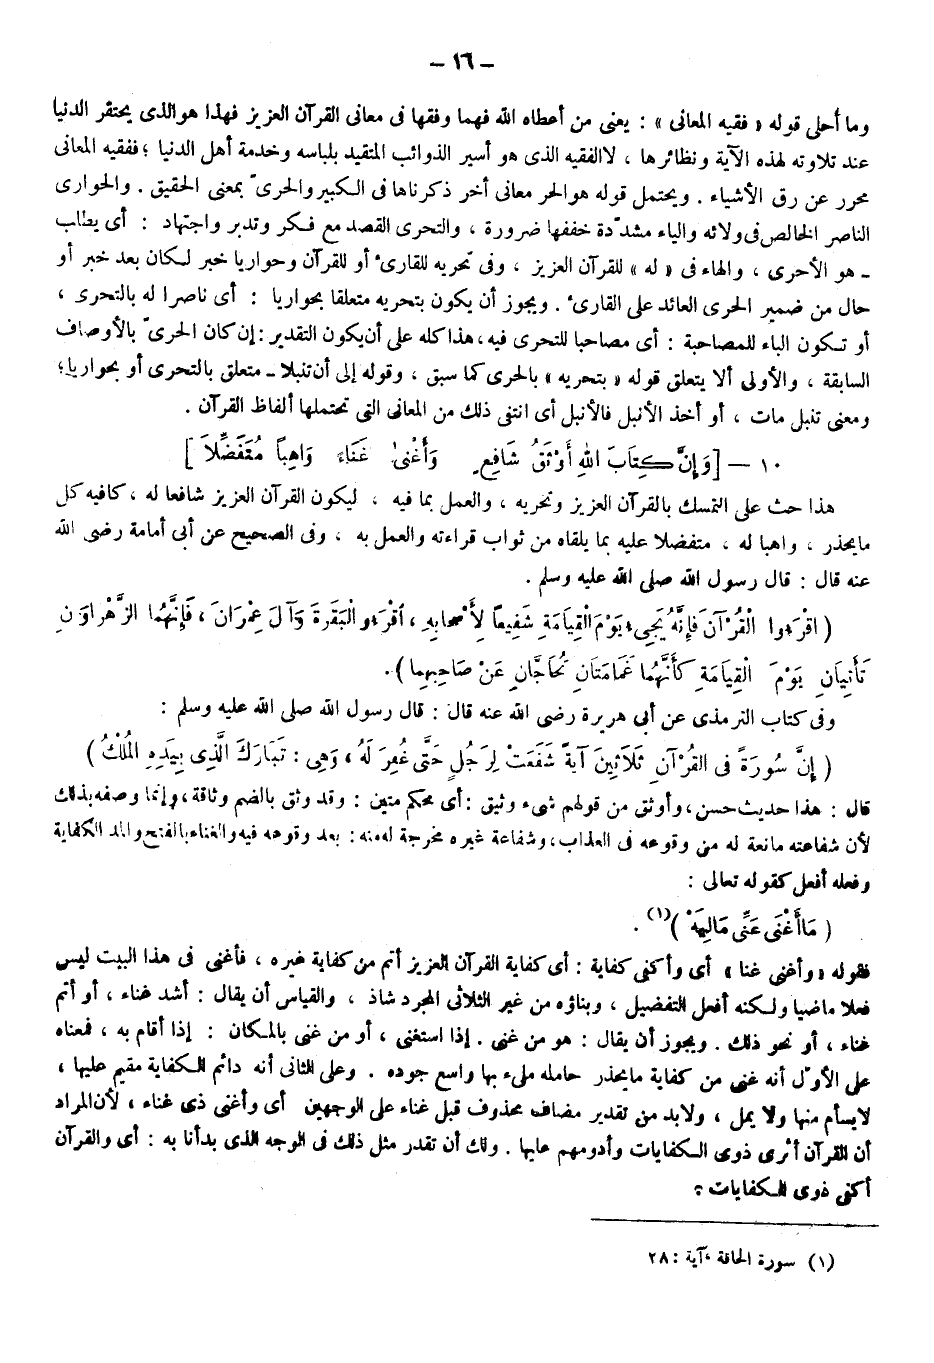 – ١٦ –
وما أحلى قوله « فقيه المعانى » : يعنى من أعطاه الله فهما وفقها فى معانى القرآن العزيز فهذا هو الذى يحتقر الدنيا
عند تلاوته لهذه الآية ونظائرها ، لا الفقيه الذى هو أسير الذوائب المتقيد بلباسه وخدمة أهل الدنيا ؛ ففقيه المعانى
محرر عن رق الأشياء . ويحتمل قوله هو الحر معانى أخر ذكرناها فى الكبير والحرىّ بمعنى الحقيق . والحوارى
الناصر الخالص فى ولائه والياء مشدّدة خففها ضرورة ، والتحرى القصد مع فكر وتدبر واجتهاد : أى يطلب
ـ هو الأحرى ، والهاء فى « له » للقرآن العزيز ، وفى تحريه للقارئ أو للقرآن وحواريا خبر لكان بعد خبر أو
حال من ضمير الحرى العائد على القارئ . ويجوز أن يكون بتحريه متعلقا بحواريا : أى ناصرا له بالتحرى ،
أو تكون الباء للمصاحبة : أى مصاحبا للتحرى فيه ، هذا كله على أن يكون التقدير : إن كان الحرىّ بالأوصاف
السابقة ، والأولى ألا يتعلق قوله « بتحريه » بالحرى كما سبق ، وقوله إلى أن تنبلا ـ متعلق بالتحرى أو بحواريا؛
ومعنى تنبل مات ، أو أخذ الأنبل فالأنبل أى انتنى ذلك من المعانى التى تحتملها ألفاظ القرآن .
١٠ – [ وَإِنَّ كِتَابَ اللهِ أَوْثَقُ شَافِعٍ وَأَغْنىٰ غَنَاءً وَاهِباً مُتَفَضِّلاَ ]
هذا حث على التمسك بالقرآن العزيز وتحريه ، والعمل بما فيه ، ليكون القرآن العزيز شافعا له ، كافيه كل
ما يحذر ، واهبا له ، متفضلا عليه بما يلقاه من ثواب قراءته والعمل به ، وفى الصحيح عن أبى أمامة رضى الله
عنه قال : قال رسول الله صلى الله عليه وسلم .
( اقْرَءوا الْقُرْآنَ فَإِنَّهُ يَجِىءُ يَوْمَ الْقِيَامَةِ شَفِيعاً لِأَصْحابِهِ ، اُقْرَءوا الْبَقَرَةَ وَآلَ عِمْرَانَ ، فَإِنَّهُما الزَّهْرَاوَنِ
تَأْتِيَانِ يَوْمَ الْقِيَامَةِ كَأَنَّهُما غَمَامَتَانِ تُحَاجَّانِ عَنْ صَاحِبِهِما ) .
وفى كتاب الترمذى عن أبى هريرة رضى الله عنه قال : قال رسول الله صلى الله عليه وسلم :
( إِنَّ سُورَةً فى القُرْآنِ ثَلاَثِينَ آيَةً شَفَعَتْ لِرَجُلٍ حَتَّى غُفِرَ لَهُ ، وَهِىَ : تَبَارَكَ الَّذِى بِيَدِهِ الْمُلْكُ )
قال : هذا حديث حسن ، وأوثق من قولهم شىء وثيق : أى محكم متين : وقد وثق بالضم وثاقة ، وإنما وصفه بذلك
لأن شفاعته مانعة له من وقوعه فى العذاب ، وشفاعة غيره مخرجة له منه : بعد وقوعه فيه والغناء بالفتح والمد الكفاية
وفعله أفعل كقوله تعالى :
( مَا أَغْنَى عَنِّى مَالِيَهْ )(١) .
فقوله « وأغنى غنا » أى وأكفى كفاية : أى كفاية القرآن العزيز أتم من كفاية غيره ، فأغنى فى هذا البيت ليس
فعلا ماضيا ولكنه أفعل التفضيل ، وبناؤه من غير الثلاثى المجرد شاذ ، والقياس أن يقال : أشد غناء ، أو أتم
غناء ، أو نحو ذلك . ويجوز أن يقال : هو من غنى . إذا استغنى ، أو من غنى بالمكان : إذا أقام به ، فمعناه
على الأوّل أنه غنى من كفاية ما يحذر حامله ملىء بها واسع جوده . وعلى الثانى أنه دائم الكفاية مقيم عليها ،
لا يسأم منها ولا يمل ، ولا بد من تقدير مضاف محذوف قبل غناء على الوجهين أى وأغنى ذى غناء ، لأن المراد
أن القرآن أثرى ذوى الكفايات وأدومهم عليها . ولك أن تقدر مثل ذلك فى الوجه الذى بدأنا به : أى والقرآن
أكفى ذوى الكفايات ؛
(١) سورة الحاقة ، آية : ٢٨